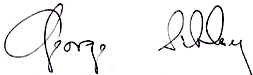 George Sibley